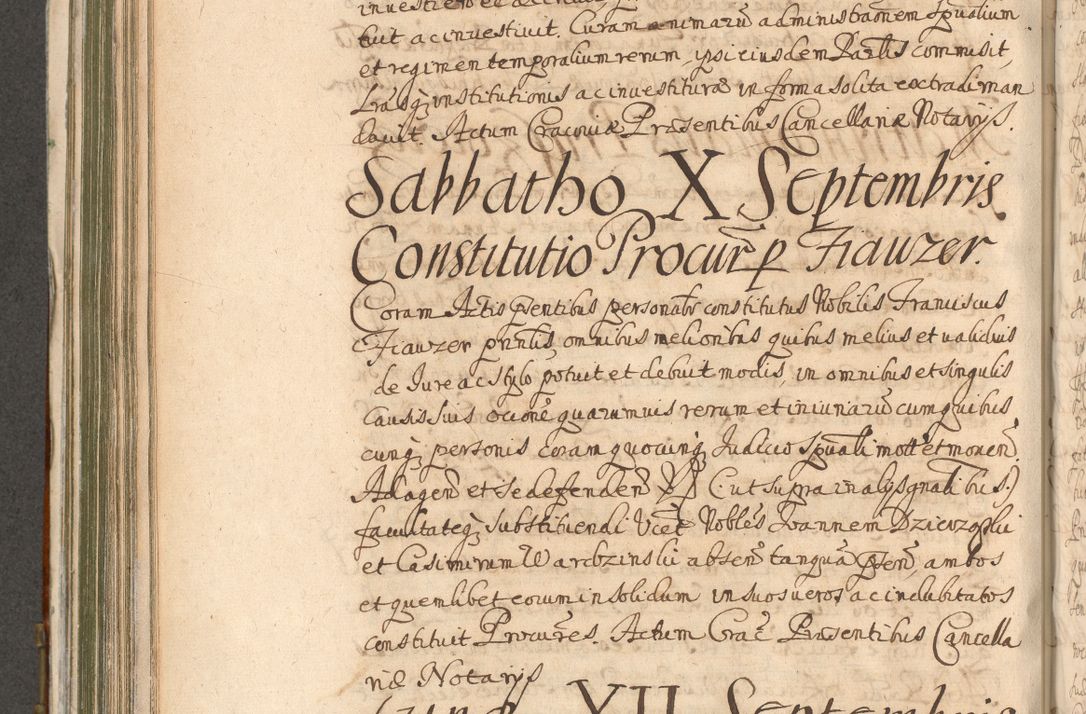 tuit ac investivit. Curam animarũ administraõnem Spũalium
et regimen temporalium rerum, ipsi eiusdem Parlis commisit,
Lrasq; institutionis ac investituræ in forma solita extradi man
davit. Actum Cracoviæ Præsentibus Cancellariæ Notarijs.
Sabbatho X Septembris
Constitutio Procur̃ p Fiauzer.
Coram Actis p̃sentibus personalr constitutus Nobilis Franciscus
Fiauzer prinlis, omnibus melioribus quibus melius et validius
de Iure ac stylo potuit et debuit modis, in omnibus et singulis
Causis suis ocione quarumvis rerum et iniuriarũ cum quibus
cunq; personis coram quocunq; Iudicio Spũali mott et moven̄.
Ad agen̄ et se defenden̄ (: ut supra in alys gnalibus :)
facultateq; substituendi Vicet Nobles Ioannem
et Casimirum absen̄ tanquã p̃sen̄, ambos
et quemlibet eorum in solidum in suos veros ac indubitatos
constituit Procures. Actum Crac̄ Præsentibus Cancella
riæ Notarijs
XII Septembris